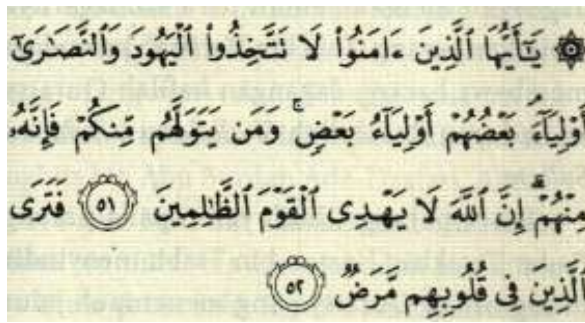 ۞ يَٰٓأَيُّهَا ٱلَّذِينَ ءَامَنُوا۟ لَا تَتَّخِذُوا۟ ٱلْيَهُودَ وَٱلنَّصَٰرَىٰٓ
أَوْلِيَآءَ بَعْضُهُمْ أَوْلِيَآءُ بَعْضٍ ۚ وَمَن يَتَوَلَّهُم مِّنكُمْ فَإِنَّهُۥ
مِنْهُمْ ۗ إِنَّ ٱللَّهَ لَا يَهْدِى ٱلْقَوْمَ ٱلظَّٰلِمِينَ ٥١ فَتَرَى
ٱلَّذِينَ فِى قُلُوبِهِم مَّرَضٌ ٥٢